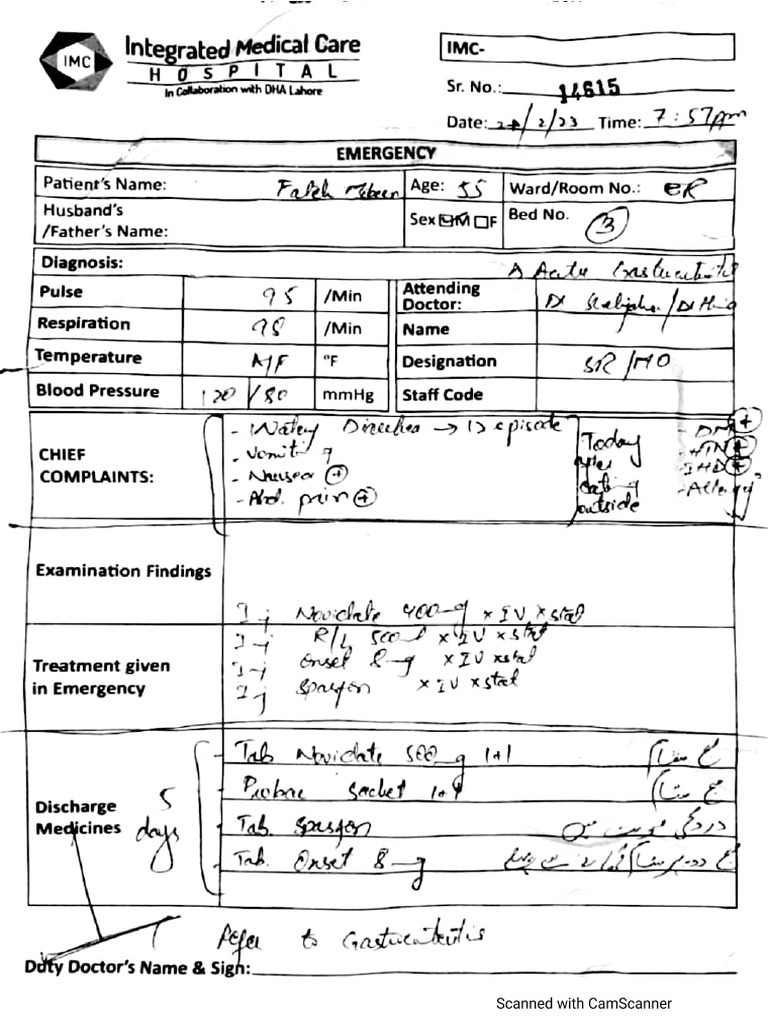 IMC
Integrated Medical Care
HOSPITAL
In Collaboration with DHA Lahore
IMC-
Sr. No.: 14615
Date: /2/23 Time: 7:57pm
EMERGENCY
Patient's Name: Age: 55 Ward/Room No.: ER
Husband's
/Father's Name:
Sex M F Bed No. 3
Diagnosis: Acute
Pulse 95 /Min Attending Doctor: Dr
Respiration 98 /Min Name
Temperature A/F °F Designation SR/MO
Blood Pressure 120/80 mmHg Staff Code
CHIEF COMPLAINTS:
- Watery Diarrhea → episode
- Vomiting
- Nausea +
- Abd. pain +
Today
after
eating
outside
- DM +
- HTN +
- IHD +
- Allergy
Examination Findings
Treatment given in Emergency
Inj Novidate 400mg x IV x stat
Inj R/L 500ml x IV x stat
Inj Onset 8mg x IV x stat
Inj Spasfon x IV x stat
Discharge Medicines
5 days
- Tab Novidate 500mg 1+1
- Sachet 1+1
- Tab. Spasfon
- Tab. Onset 8mg
Refer to
Duty Doctor's Name & Sign:
Scanned with CamScanner